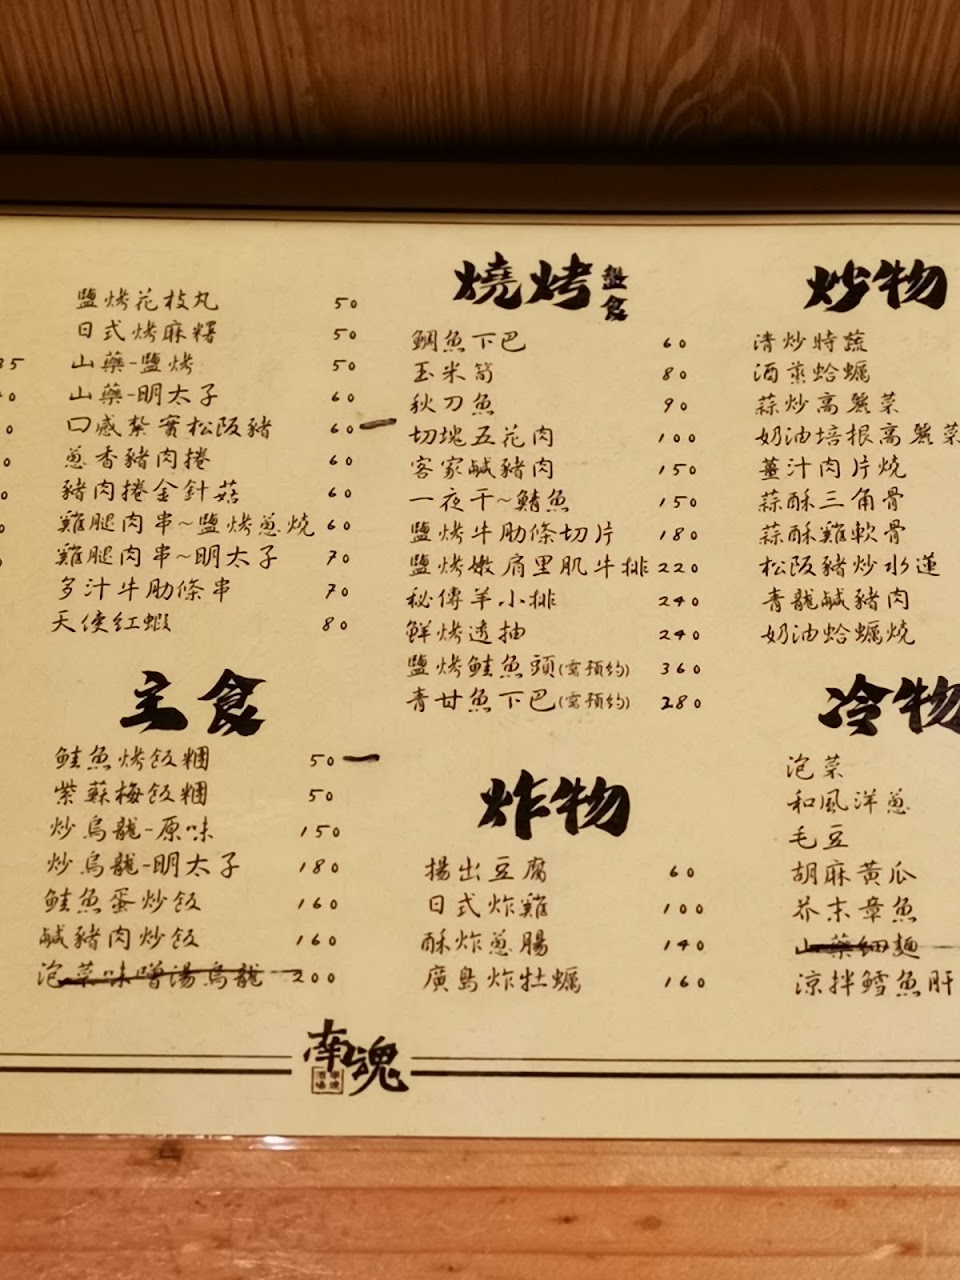 鹽烤花枝丸 50
日式烤麻糬 50
山藥-鹽烤 50
山藥-明太子 60
口感紮實松阪豬 60
蔥香豬肉捲 60
豬肉捲金針菇 60
雞腿肉串~鹽烤蔥燒 60
雞腿肉串~明太子 70
多汁牛肋條串 70
天使紅蝦 80
主食
鮭魚烤飯糰 50
紫蘇梅飯糰 50
炒烏龍-原味 150
炒烏龍-明太子 180
鮭魚蛋炒飯 160
鹹豬肉炒飯 160
泡菜味噌湯烏龍 200
燒烤盤食
鯛魚下巴 60
玉米筍 80
秋刀魚 90
切塊五花肉 100
客家鹹豬肉 150
一夜干~鯖魚 150
鹽烤牛肋條切片 180
鹽烤嫩肩里肌牛排 220
秘傳羊小排 240
鮮烤透抽 240
鹽烤鮭魚頭(需預約) 360
青甘魚下巴(需預約) 280
炸物
揚出豆腐 60
日式炸雞 100
酥炸蔥腸 140
廣島炸牡蠣 160
炒物
清炒時蔬
酒蒸蛤蠣
蒜炒高麗菜
奶油培根高麗菜
薑汁肉片燒
蒜酥三角骨
蒜酥雞軟骨
松阪豬炒水蓮
青龍鹹豬肉
奶油蛤蠣燒
冷物
泡菜
和風洋蔥
毛豆
胡麻黃瓜
芥末章魚
山藥細麵
涼拌鱈魚肝
南魂